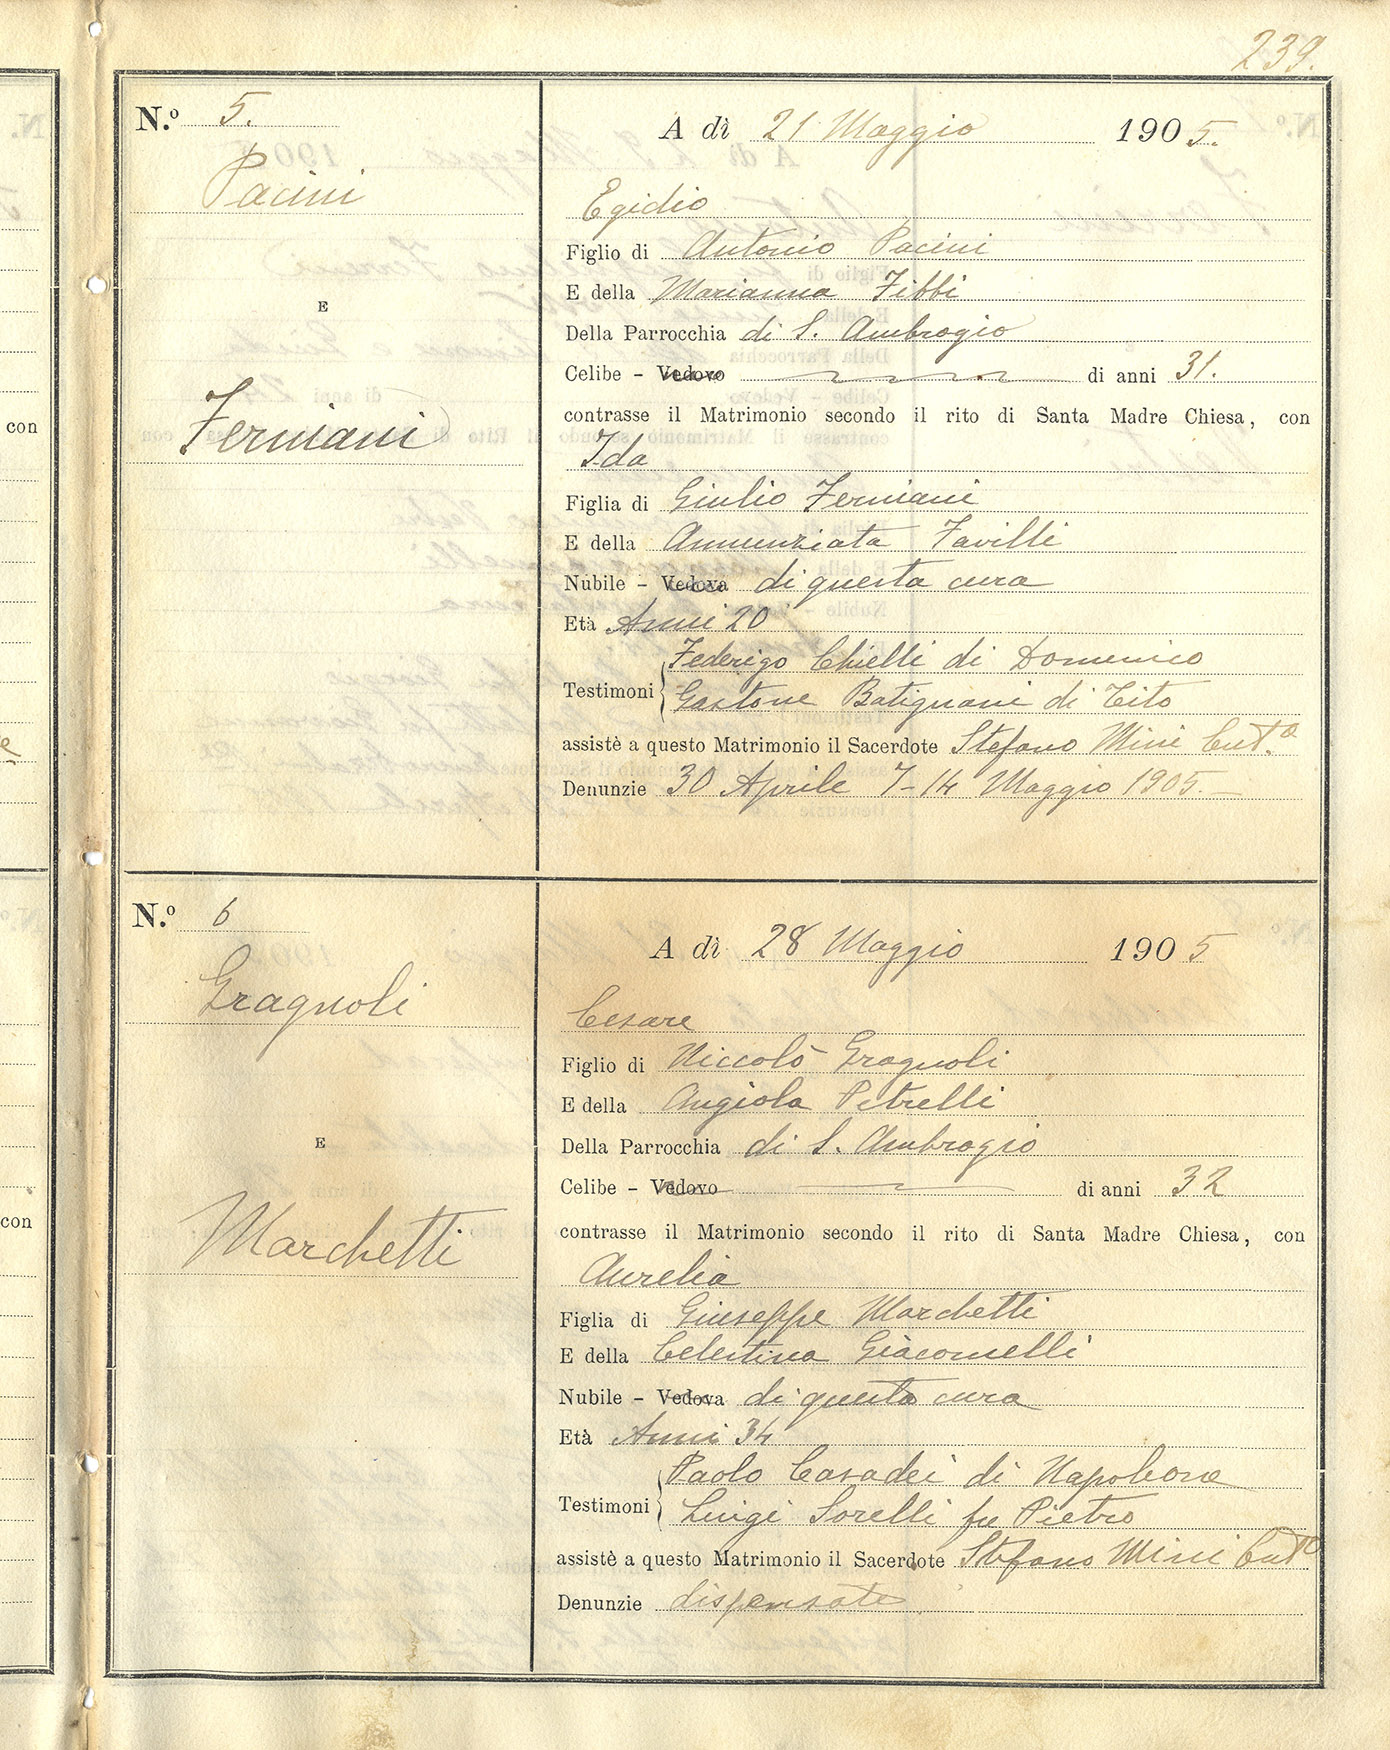 239.
N.º 5.
Pacini
E
Fermani
A dì 21 Maggio 1905.
Egidio
Figlio di Antonio Pacini
E della Marianna Fibbi
Della Parrocchia di S. Ambrogio
Celibe – Vedovo di anni 31.
contrasse il Matrimonio secondo il rito di Santa Madre Chiesa, con
Ida
Figlia di Giulio Fermani
E della Annunziata Favilli
Nubile – Vedova di questa cura
Età Anni 20
Federigo Chielli di Domenico
Testimoni
Gastone Batignani di Tito
assistè a questo Matrimonio il Sacerdote Stefano Mini Curt.º
Denunzie 30 Aprile 7–14 Maggio 1905.–
N.º 6
Gragnoli
E
Marchetti
A dì 28 Maggio 1905
Cesare
Figlio di Niccolò Gragnoli
E della Angiola Petrelli
Della Parrocchia di S. Ambrogio
Celibe – Vedovo di anni 32
contrasse il Matrimonio secondo il rito di Santa Madre Chiesa, con
Aurelia
Figlia di Giuseppe Marchetti
E della Celestina Giacomelli
Nubile – Vedova di questa cura
Età Anni 34
Paolo Casadei di Napoleone
Testimoni
Luigi Sorelli fu Pietro
assistè a questo Matrimonio il Sacerdote Stefano Mini Curtº
Denunzie dispensate
con
con